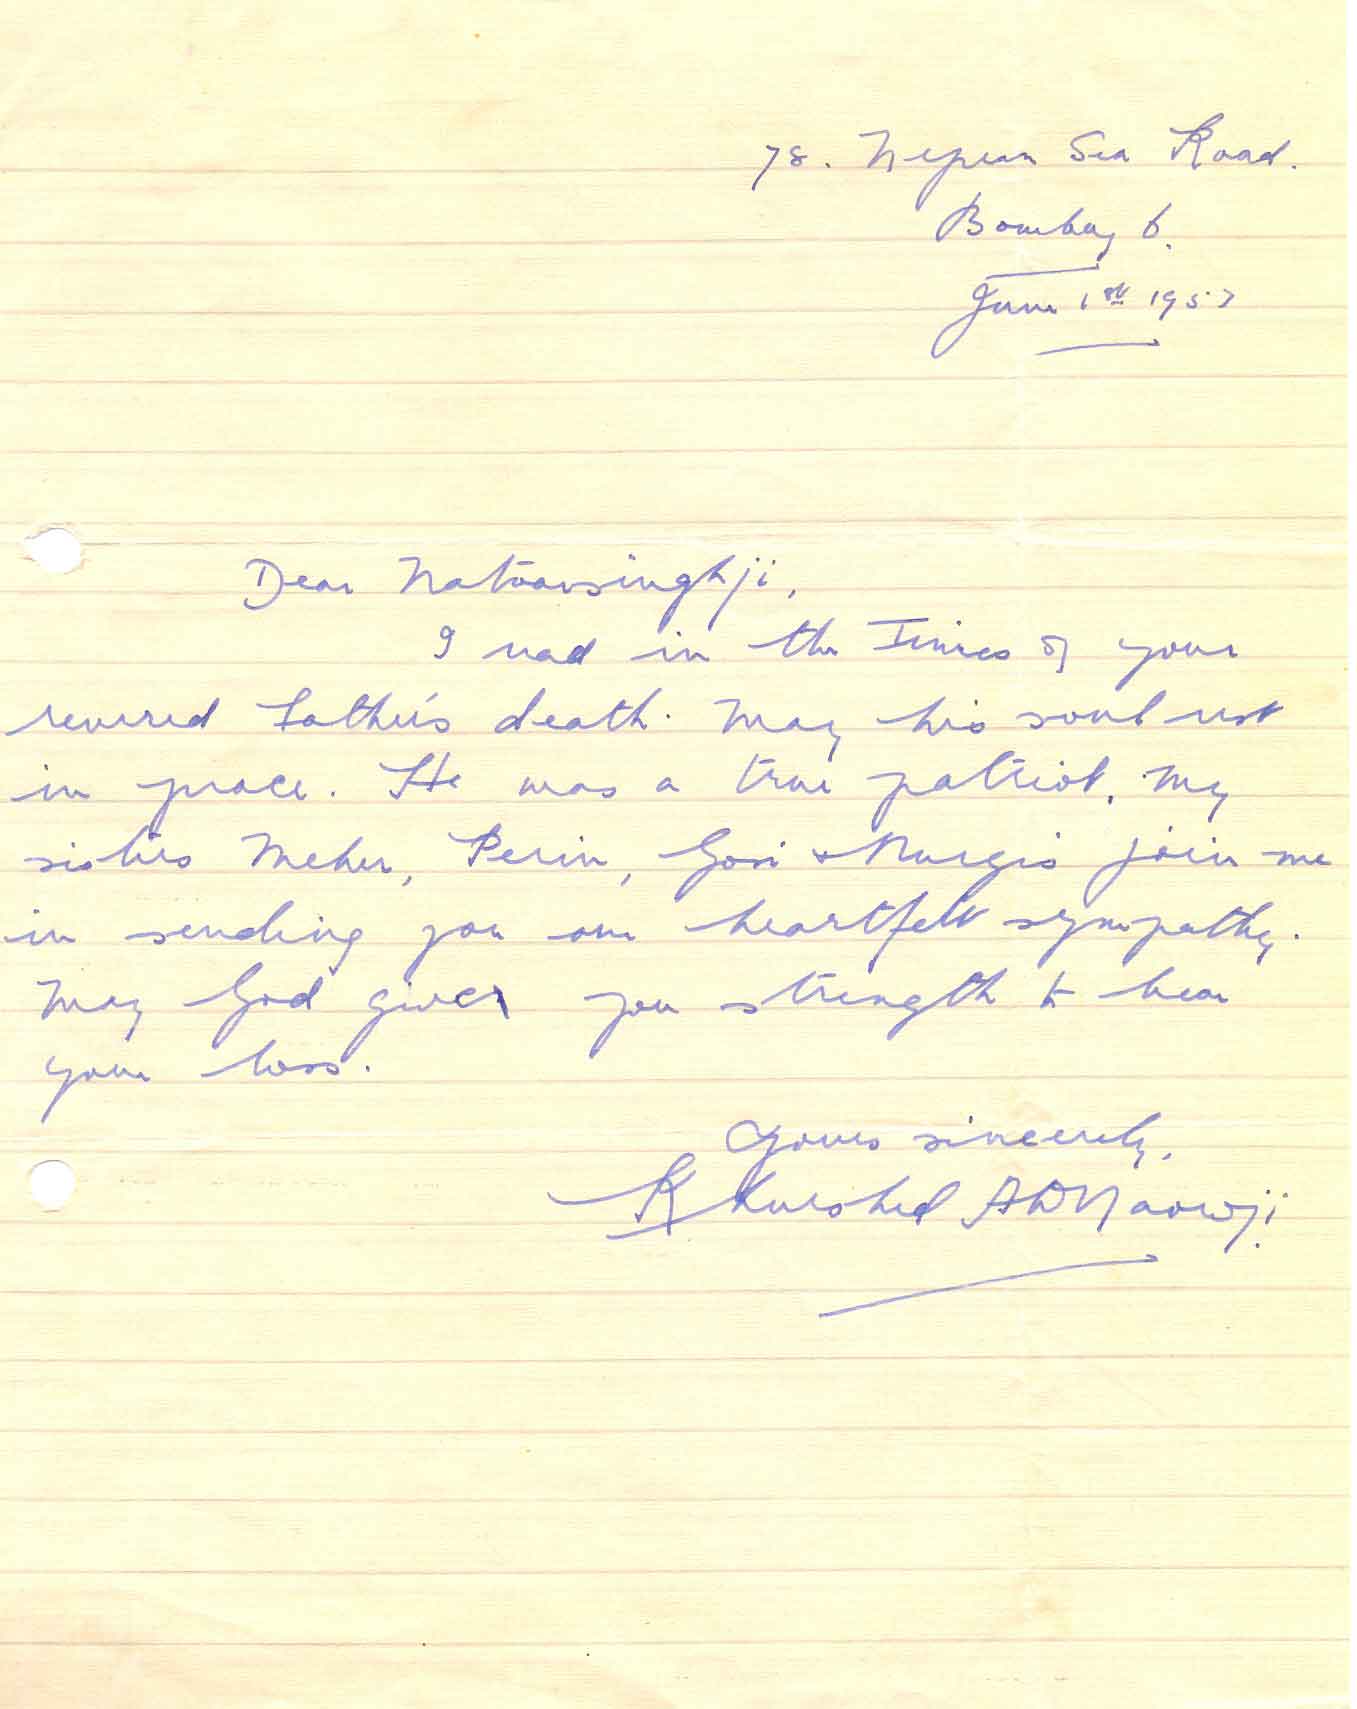 78. Nepean Sea Road.
Bombay 6.
June 1st 1957
Dear Natvarsinghji,
I read in the Times of your
revered father's death. May his soul rest
in peace. He was a true patriot. My
sisters Meher, Perin, Gosi & Nurgis join me
in sending you our heartfelt sympathy.
May God give you strength to bear
your loss.
Yours sincerely,
Khurshed AD Naowji